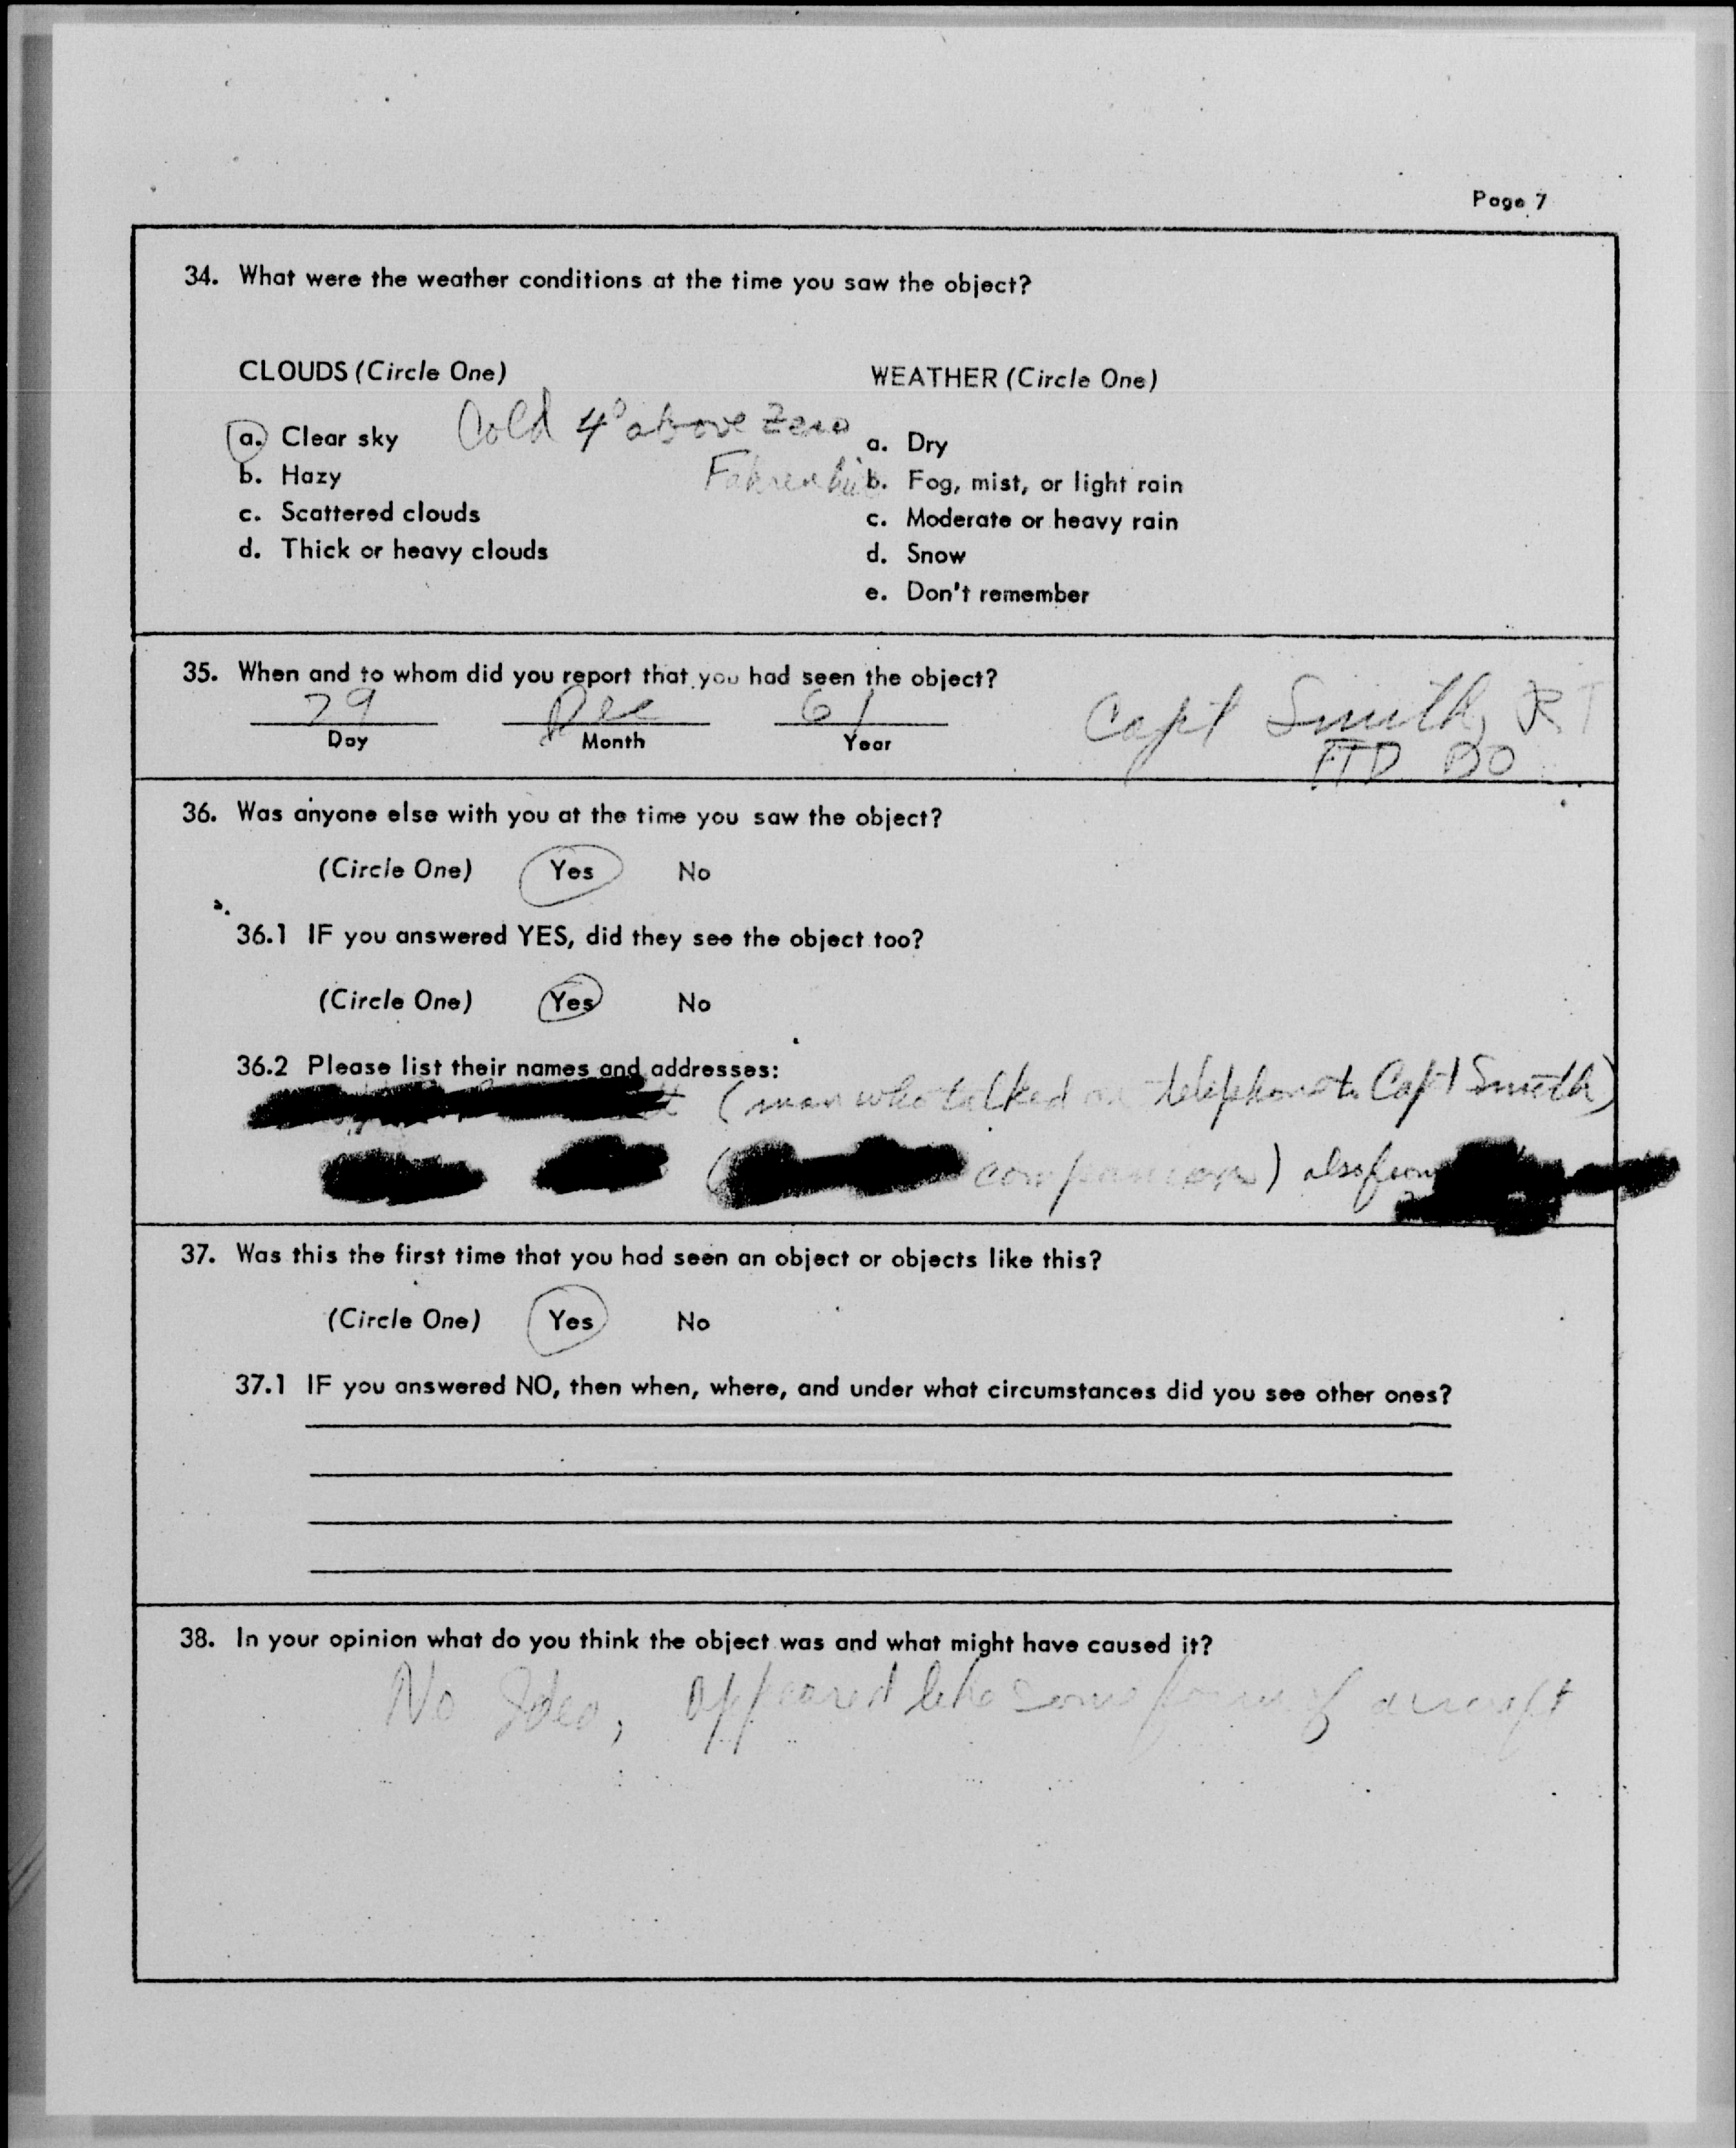 Page 7
34. What were the weather conditions at the time you saw the object?
CLOUDS (Circle One)
a. Clear sky
b. Hazy
c. Scattered clouds
d. Thick or heavy clouds
Cold 4° above Zero
WEATHER (Circle One)
a. Dry
b. Fog, mist, or light rain
c. Moderate or heavy rain
d. Snow
e. Don't remember
35. When and to whom did you report that you had seen the object?
29 Dec 61 Capt Smith,
Day Month Year FTD DO
36. Was anyone else with you at the time you saw the object?
(Circle One) Yes No
36.1 IF you answered YES, did they see the object too?
(Circle One) Yes No
36.2 Please list their names and addresses:
(man who talked on telephone to Capt Smith)
( companion) also from
37. Was this the first time that you had seen an object or objects like this?
(Circle One) Yes No
37.1 IF you answered NO, then when, where, and under what circumstances did you see other ones?
38. In your opinion what do you think the object was and what might have caused it?
No Idea, appeared like some form of aircraft